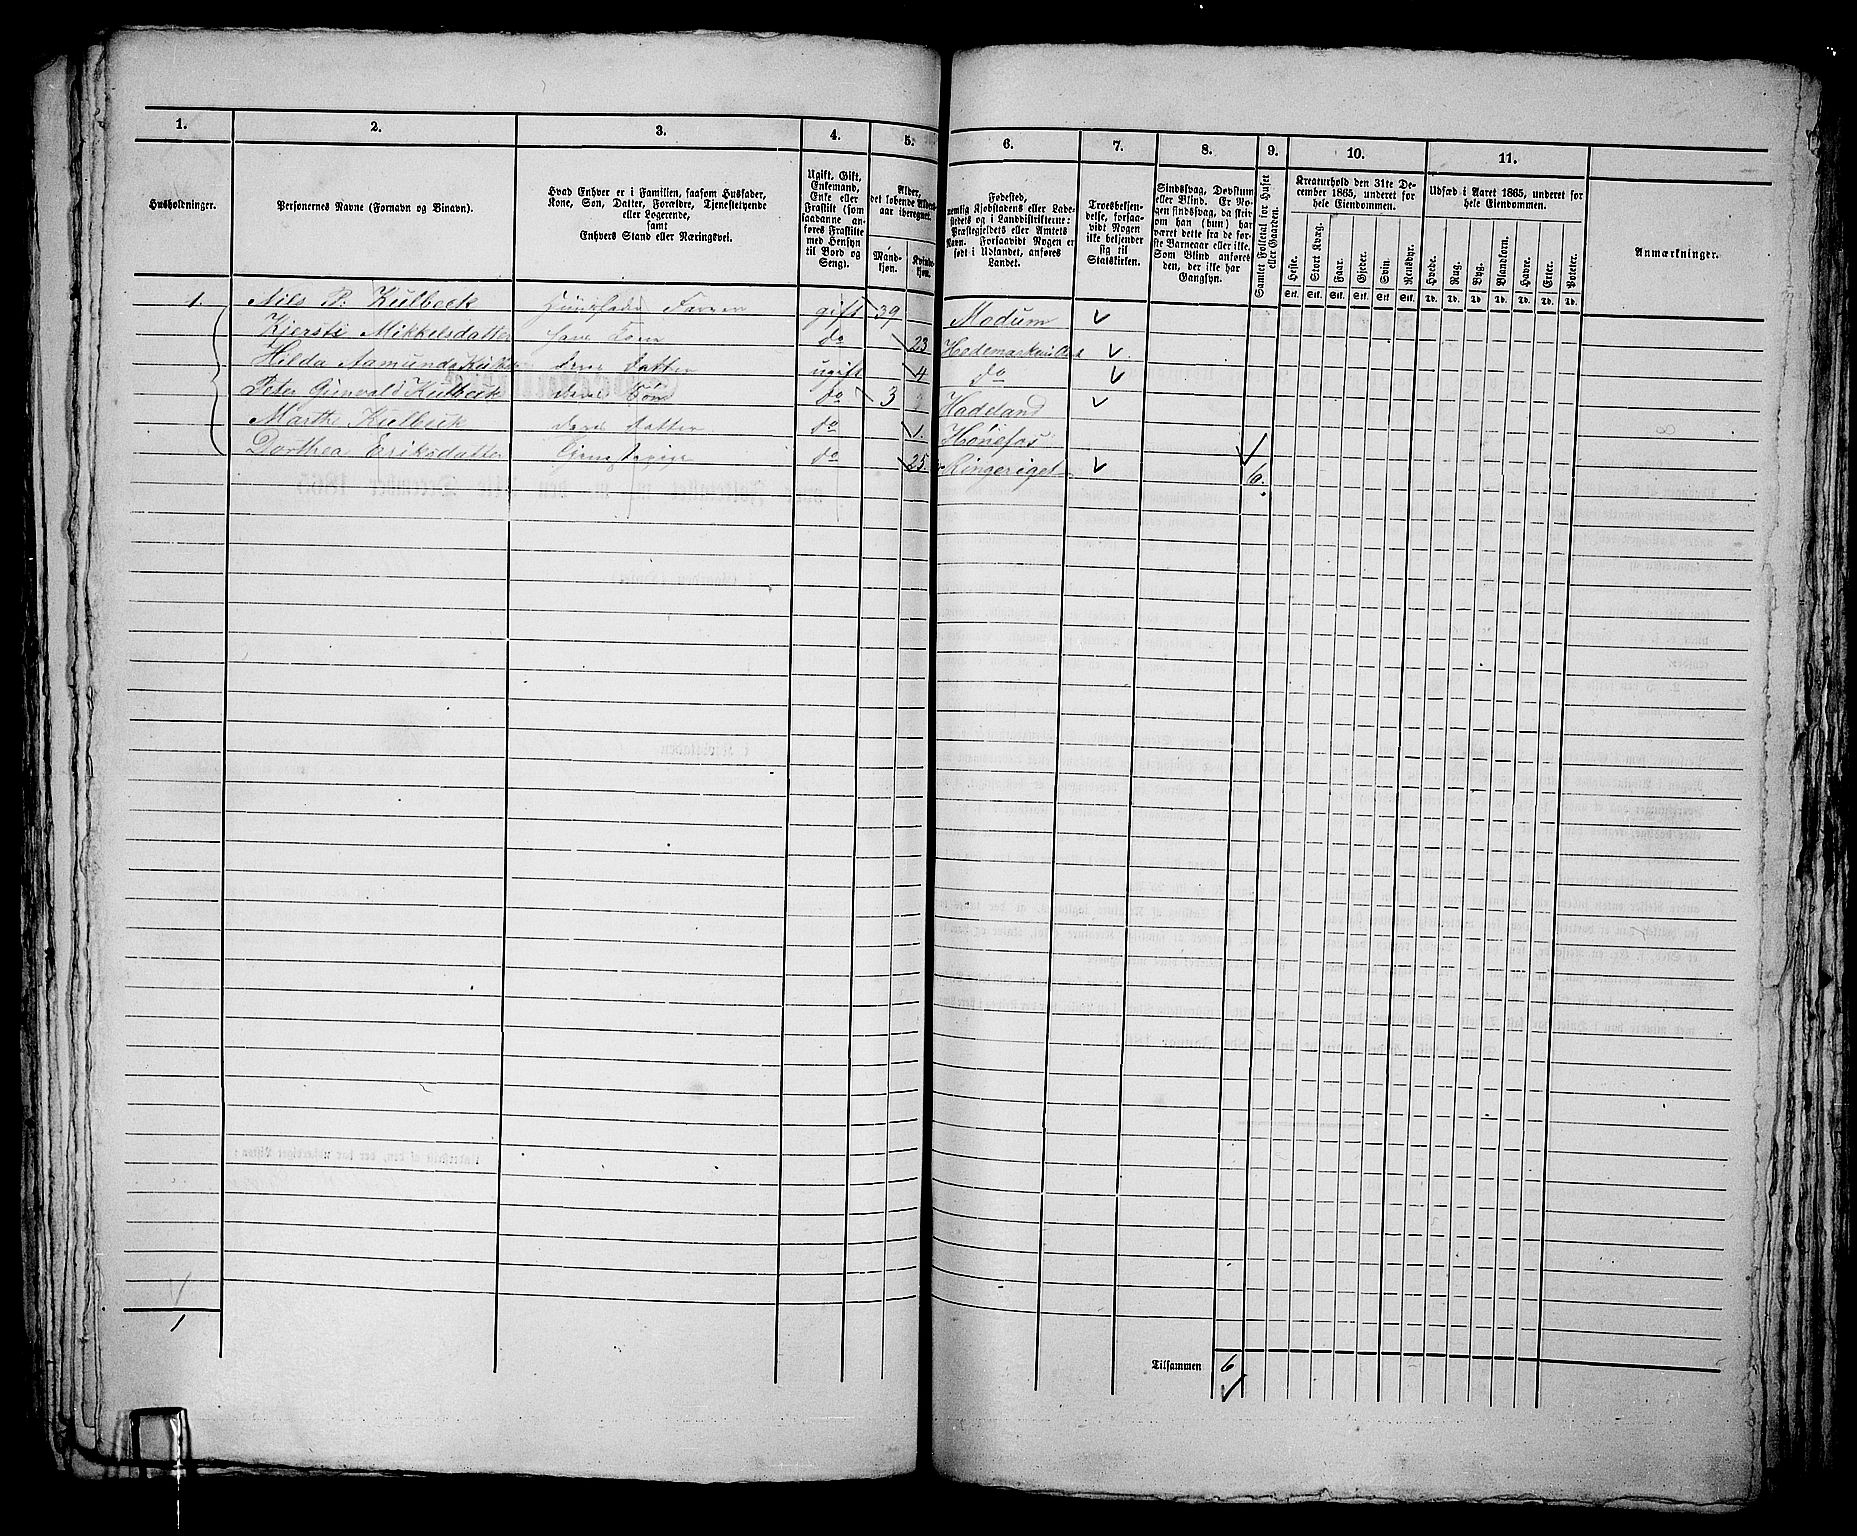 1. 2. 3. 4. 5. 6. 7. 8. 9. 10. 11.
Husholdninger.
Personernes Navne (Fornavn og Binavn).
Hvad Enhver er i Familien, saasom Husfader,
Kone, Søn, Datter, Forældre, Tjenestetyende
eller Logerende,
samt
Enhvers Stand eller Næringsvei.
Ugift, Gift,
Enkemand,
Enke eller
Fraskilt (som
saadanne an-
føres Fraskilte
med Hensyn
til Bord og
Seng).
Alder,
det løbende Alders-
aar iberegnet.
Mand-
kjøn.
Kvinde-
kjøn.
Fødested,
nemlig Kjøbstadens eller Lade-
stedets og i Landdistrikterne:
Præstegjeldets eller Amtets
Navn. Forsaavidt Nogen er
født i Udlandet, anføres
Landet.
Troesbekjen-
delse, forsaa-
vidt Nogen
ikke bekjender
sig til
Statskirken.
Sindssvag, Døvstum
eller Blind. Er No-
gen sindssvag, da skriv
om han (hun) har
været dette fra de før-
ste Barneaar eller ikke.
Som Blind anføres
den, der ikke har
Gangsyn.
Samlet Folketal for Huset
eller Gaarden.
Kreaturhold den 31te De-
cember 1865, underet for
hele Eiendommen.
Heste. Stort Kvæg. Faar. Gjeder. Svin. Rensdyr.
Stk. Stk. Stk. Stk. Stk. Stk.
Udsæd i Aaret 1865, underet for
hele Eiendommen.
Hvede. Rug. Byg. Blandkorn. Havre. Erter. Poteter.
Td. Td. Td. Td. Td. Td. Td.
Anmærkninger.
1. Nils P. Kulbeck Huusfader Farver gift 39 Modum
Kjersti Mikkelsdatter hans Kone do 23
Hilda deres Datter ugift 4 do
Peter Kulbeck deres Søn do 3 Hadeland
Marthe Kulbeck deres Datter do 1. Hønefos
Dorthea Eriksdatter do 25 Ringeriget 6.
1
Tilsammen 6